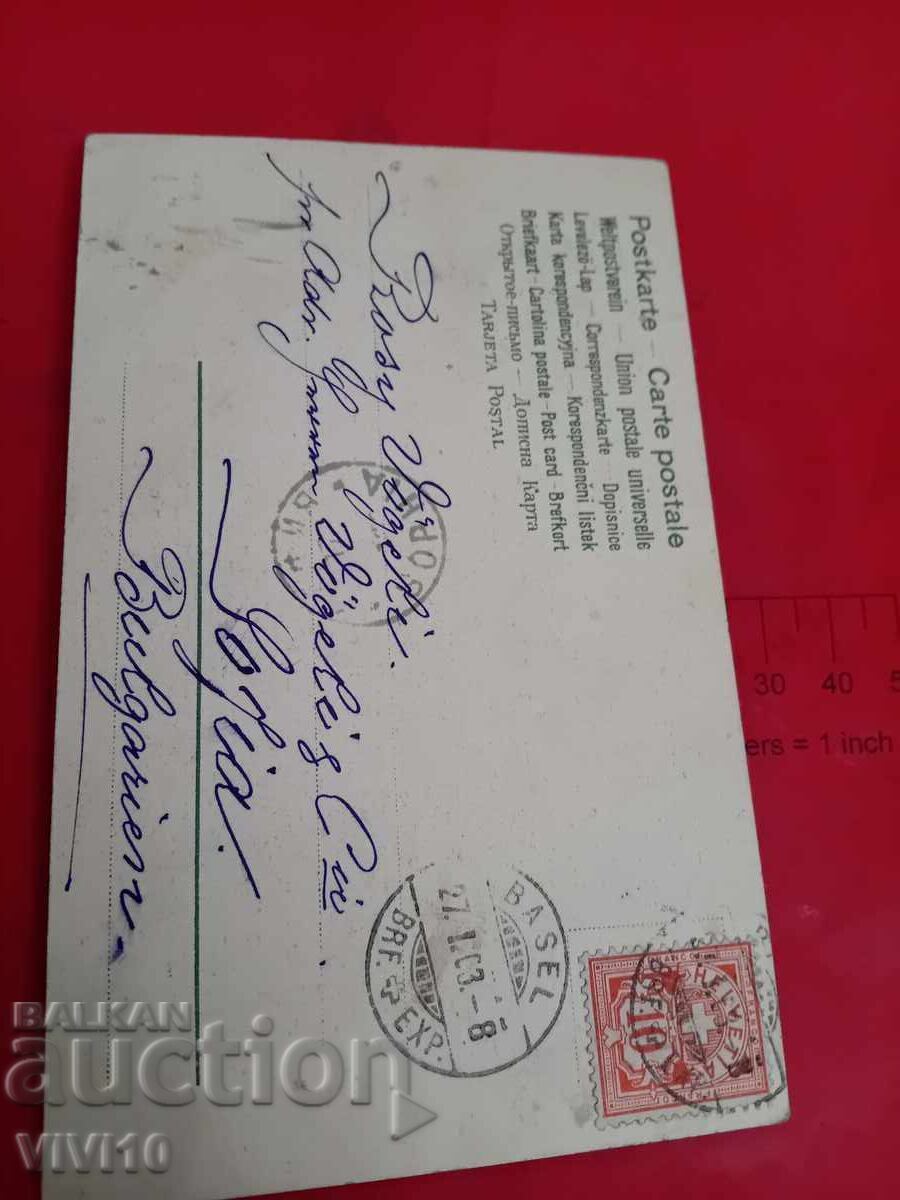 Postkarte — Carte postale
Weltpostverein — Union postale universelle
Levelező-Lap — Correspondenzkarte — Dopisnice
Karta korespondencyjna — Korespondenční listek
Briefkaart - Cartolina postale - Post card - Brefkort
Открытое-письмо — Дописна Карта
TARJETA POSTAL
Rosy Vögeli.
Vögeli & Cie
Sofia.
Bulgarien
BASEL
27. I. 03. - 8
BRF. EXP.
HELVETIA
FRANCO
10
30 40
ers = 1 inch
BALKAN
auction
VIVI10